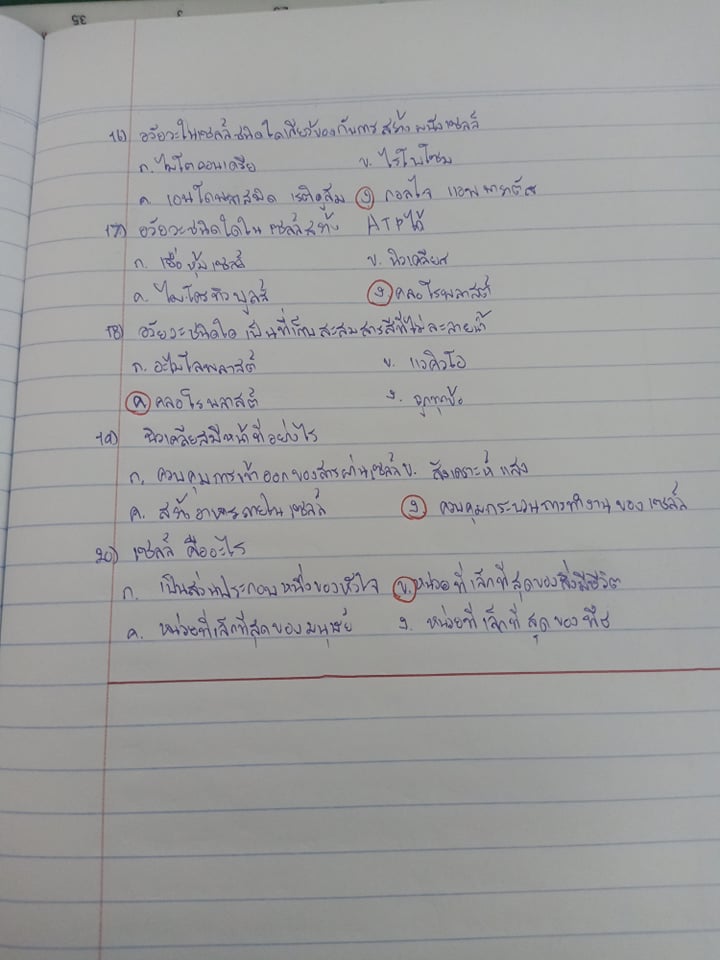 16) อวัยวะในเซลล์ชนิดใดเกี่ยวข้องกับการสร้างผนังเซลล์
ก. ไมโตคอนเดรีย ข. ไรโบโซม
ค. เอนโดพลาสมิด เรติคูลัม ง กอลไจ แอพพาราตัส
17) อวัยวะชนิดใดใน เซลล์สร้าง ATP ได้
ก. เยื่อหุ้มเซลล์ ข. นิวเคลียส
ค. ไมโครทิวบูลล์ ง คลอโรพลาสต์
18) อวัยวะชนิดใด เป็นที่เก็บสะสมสารสีที่ไม่ละลายน้ำ
ก. อะไมโลพลาสต์ ข. แวคิวโอ
ค คลอโรพลาสต์ ง. ถูกทุกข้อ
19) นิวเคลียสมีหน้าที่อย่างไร
ก. ควบคุมการเข้าออกของสารผ่านเซลล์ ข. สังเคราะห์แสง
ค. สร้างอาหารภายในเซลล์ ง ควบคุมกระบวนการทำงานของเซลล์
20) เซลล์ คืออะไร
ก. เป็นส่วนประกอบหนึ่งของหัวใจ ข. หน่วยที่เล็กที่สุดของสิ่งมีชีวิต
ค. หน่วยที่เล็กที่สุดของมนุษย์ ง. หน่วยที่เล็กที่สุดของพืช